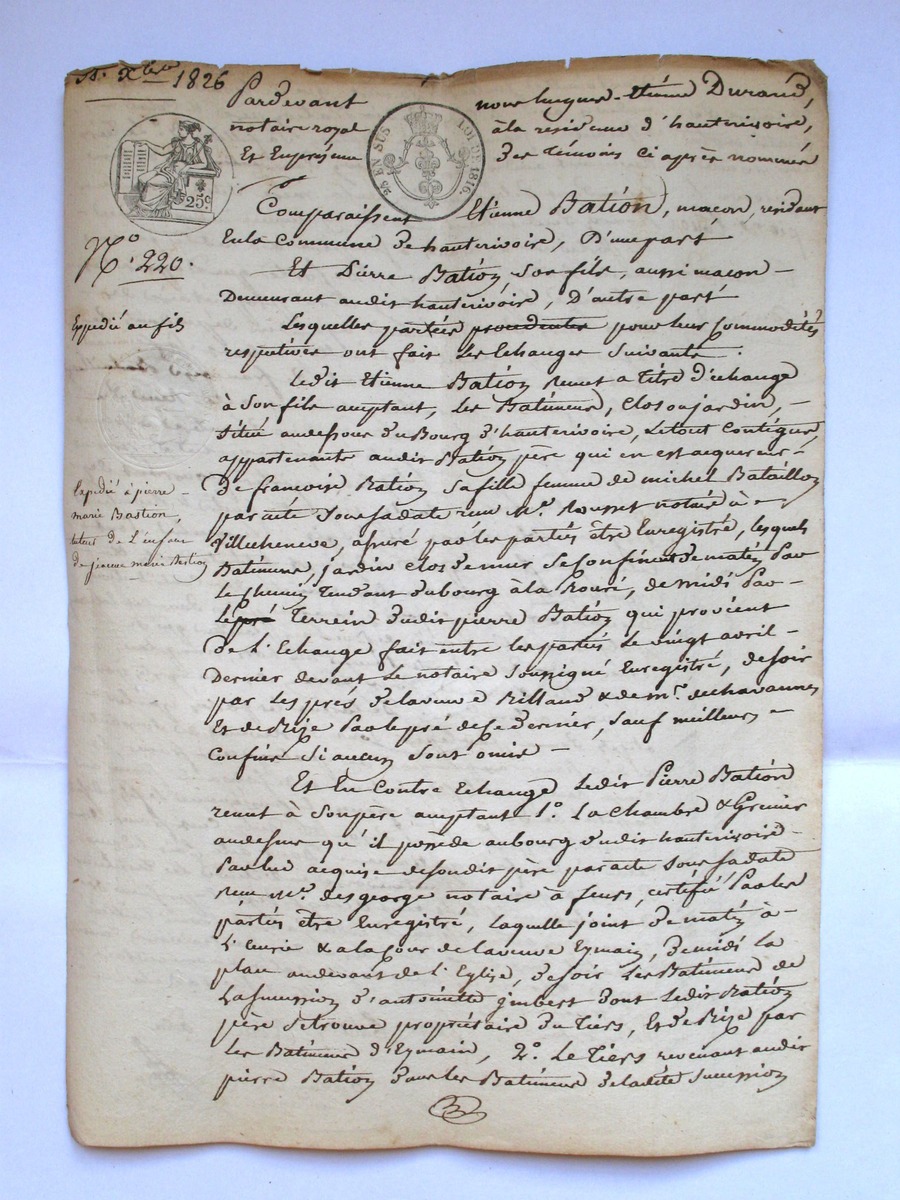 Xbre 1826
Pardevant nous hugues-étienne Durand,
notaire royal à la residence d'hauterivoire,
Et En présence des témoins ci après nommés
25 EN SUS
LOI DE 1816.
25c
Comparaissent Etienne Bation, maçon, residant
En la Commune de hauterivoire, D'une part
N° 220.
Et Pierre Bation son fils, aussi maçon
Demeurant audit hauterivoire, D'autre part
Expedié au fils
Lesquelles parties pour leurs Commodités
respectives ont fait les Echanges suivants.
Ledit Etienne Bation remet a titre d'échange
à Son fils acceptant, les Batimens, Clos ou jardin,
Situés audessous du Bourg d'hauterivoire, Le tout Contigus,
appartenants audit Bation pere qui en est acquereur
Expedié à pierre
marie Bastion,
tuteur de L'enfant
de jeanne marie Bastion
de françoise Bation sa fille femme de michel Bataillon
par acte sous sa date reçu Me. Rousset notaire à
Villecheneve, assuré par les parties être Enregistré, lesquels
Batimens, jardin clos de mur, se Confinent de matin par
le chemin Tendant du bourg à la de midi par
Le pré Terrein dudit pierre Bation qui provient
De L'Echange fait entre les parties Le vingt avril
Dernier devant Le notaire soussigné Enregistré, de soir
par Les prés de la veuve Rillaud & de mr. dechavannes
Et de Bize par le pré de ce Dernier, sauf meilleurs
Confins si aucuns sont omis
Et En Contre Echange Ledit Pierre Bation
remet à Son père acceptant 1°. La chambre & Grenier
audessus qu'il possède au bourg dudit hauterivoire
Par lui acquise de sondit père par acte sous sa date
reçu Me. desgeorge notaire à feurs, certifié par les
parties être Enregistré, laquelle joint de matin à
L'Ecurie & a la Cour de la veuve Eymain, de midi la
place audevant de L'Eglise, de soir les Batimens de
La succession d'antoinette jmbert dont ledit Bation
père se trouve propriétaire du Tiers, Et de Bize par
les Batimens d'Eymain, 2°. Le Tiers revenant audit
pierre Bation dans les Batimens de ladite succession